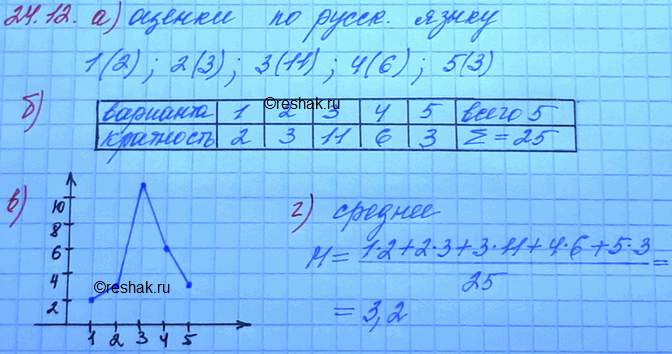 24.12. а) оценки по русск. языку
1(2); 2(3); 3(11); 4(6); 5(3)
©reshak.ru
б)
варианта 1 2 3 4 5 всего 5
кратность 2 3 11 6 3 Σ = 25
в)
10
8
6
4
2
1 2 3 4 5
©reshak.ru
г) среднее
M = 1·2+2·3+3·11+4·6+5·3 =
25
= 3,2